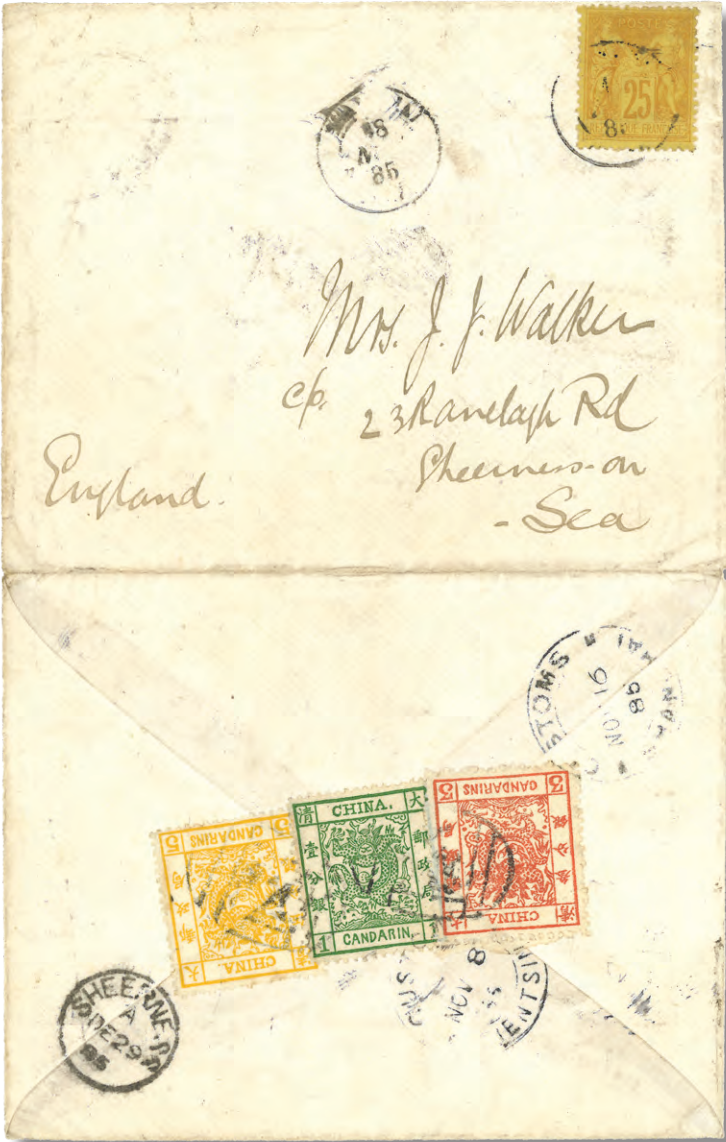 POSTE
25
18
N
85
Mrs. J. J. Walker
c/o.
23 Ranelagh Rd
Sheerness-on
- Sea
England.
CUSTOMS
NOV
16
85
CANDARINS
5
5
CHINA.
大
CHINA.
大
清
郵政局
壹分銀
1
CANDARIN.
1
3
CANDARINS
3
CHINA
大
清
CUST
NOV 8
85
IENTSIN
SHEERNE
A
DE 29
85